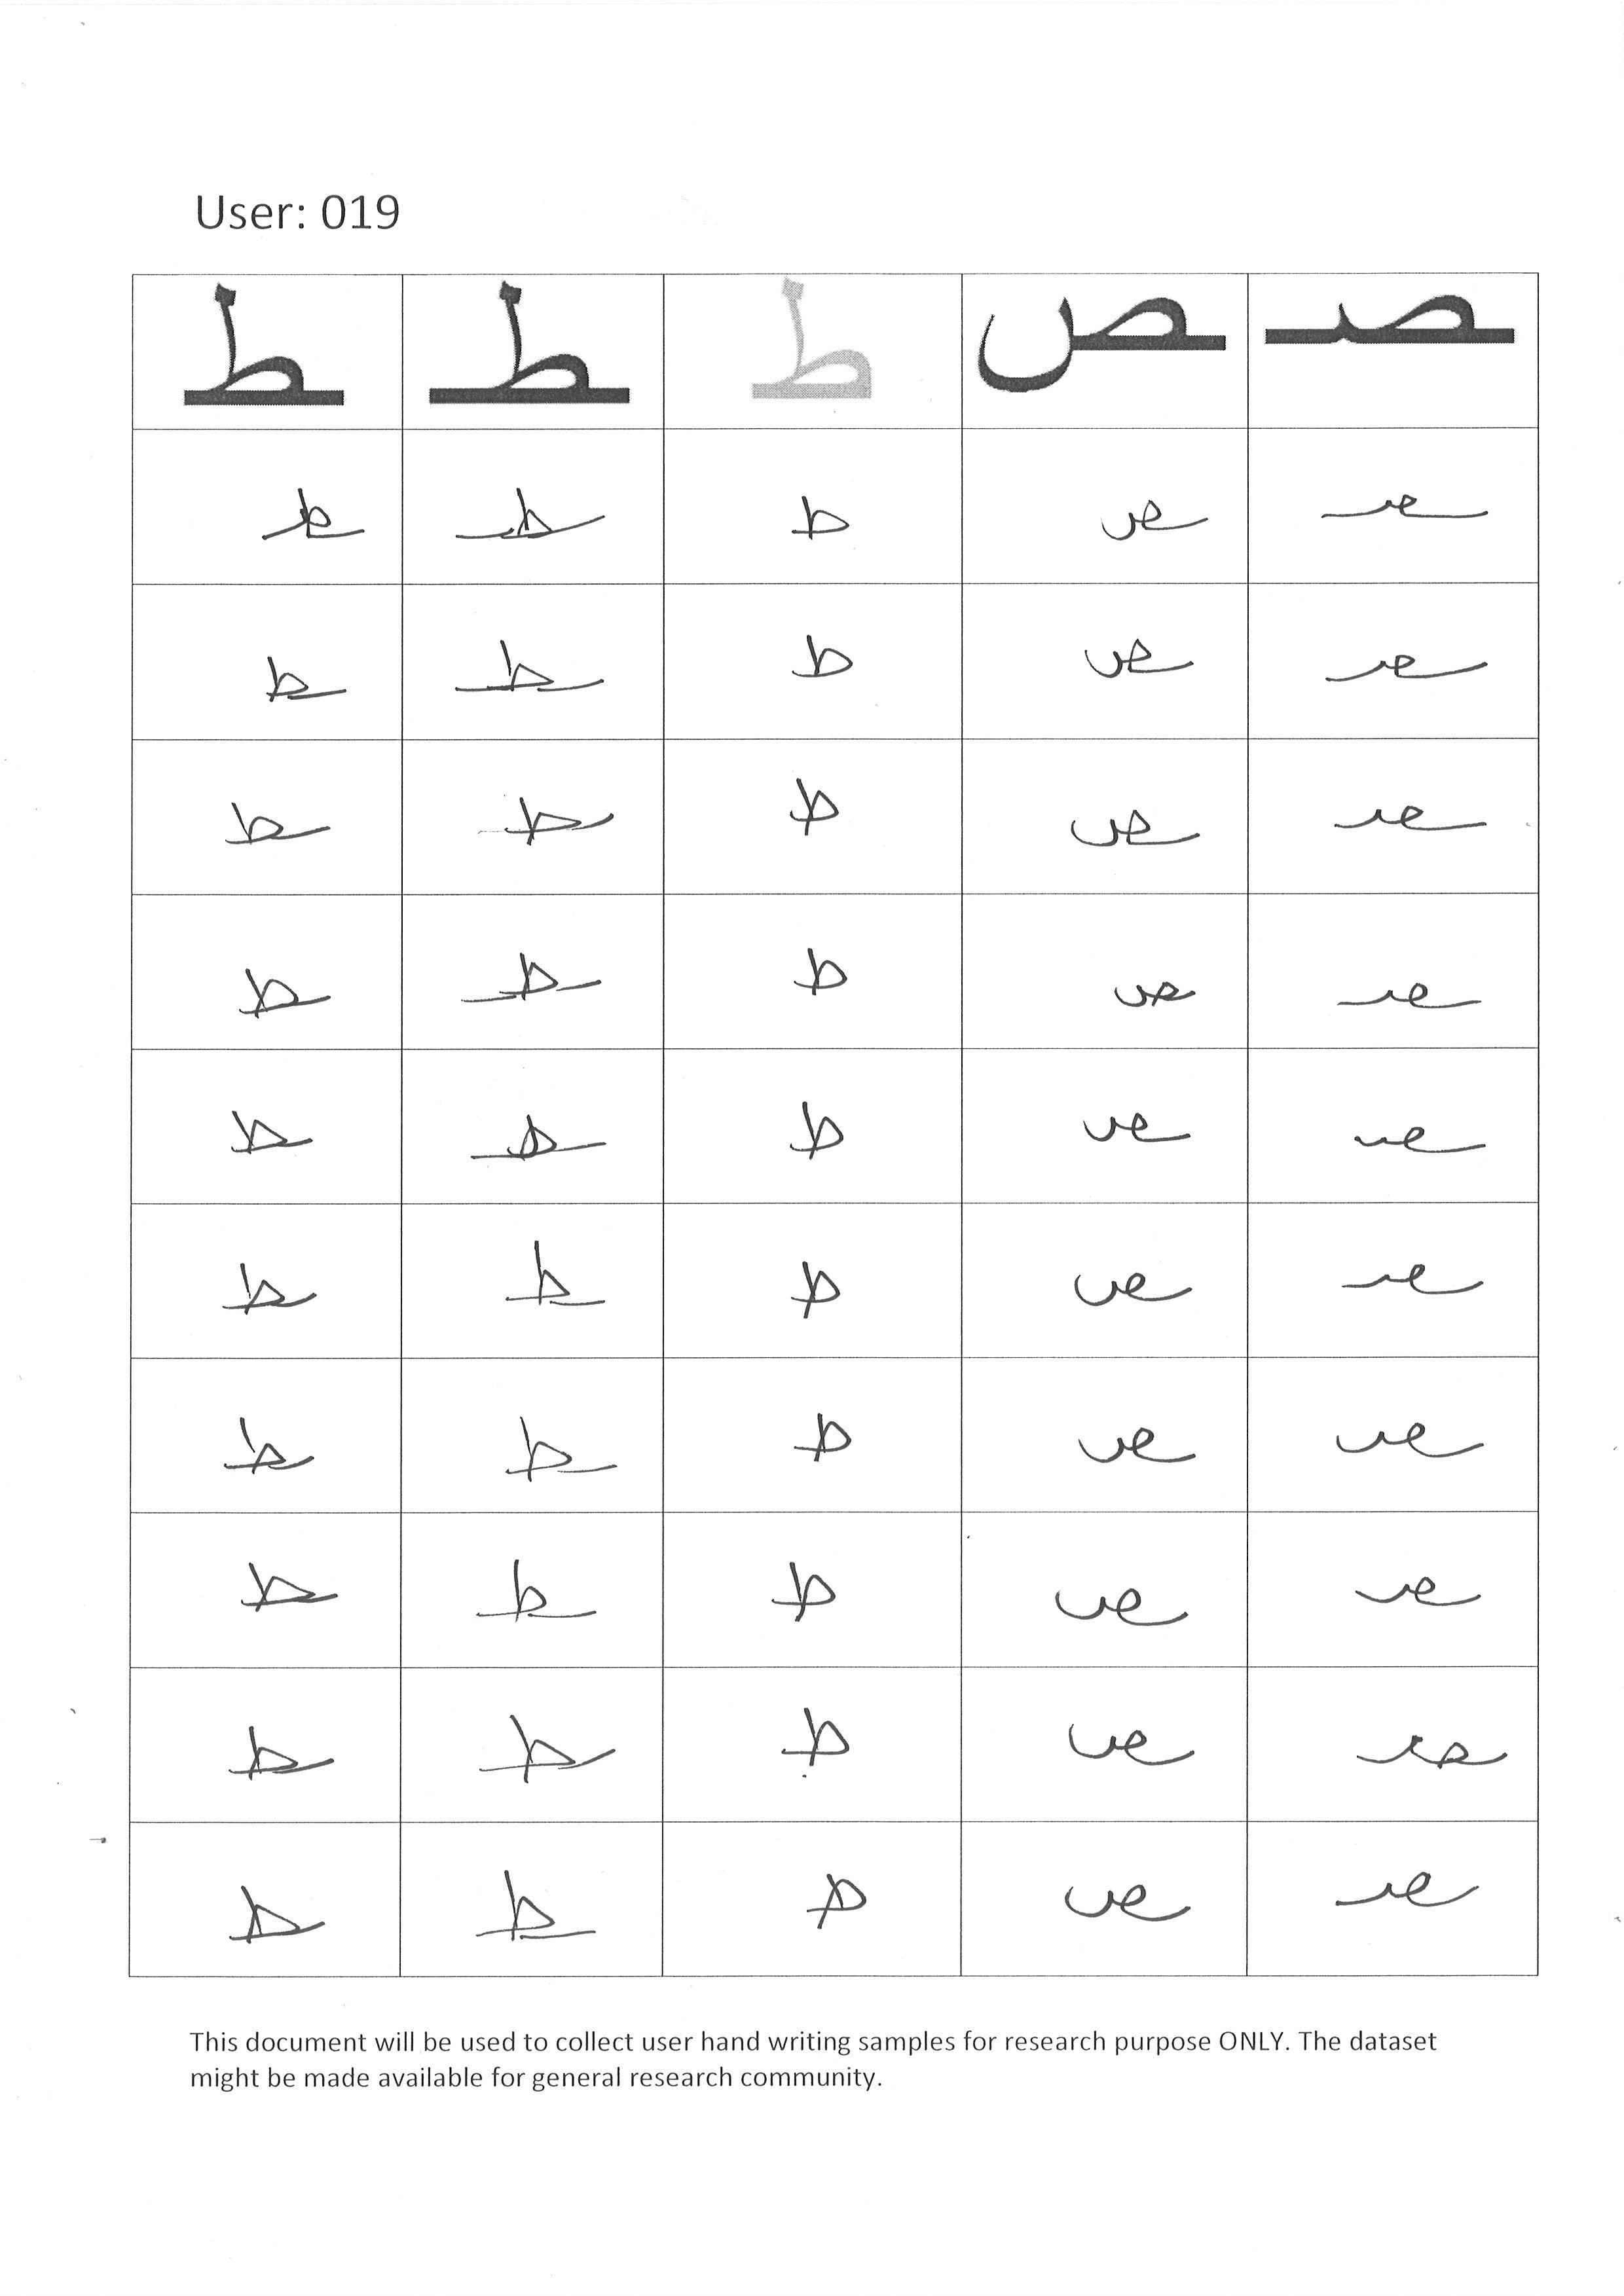 User: 019
ـصـ ـص ط ـطـ ـط
ـصـ ـص ط ـطـ ـط
ـصـ ـص ط ـطـ ـط
ـصـ ـص ط ـطـ ـط
ـصـ ـص ط ـطـ ـط
ـصـ ـص ط ـطـ ـط
ـصـ ـص ط ـطـ ـط
ـصـ ـص ط ـطـ ـط
ـصـ ـص ط ـطـ ـط
ـصـ ـص ط ـطـ ـط
ـصـ ـص ط ـطـ ـط
This document will be used to collect user hand writing samples for research purpose ONLY. The dataset
might be made available for general research community.